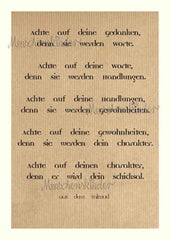 Achte auf deine Gedanken,
denn sie werden Worte.
Achte auf deine Worte,
denn sie werden Handlungen.
Achte auf deine Handlungen,
denn sie werden Gewohnheiten.
Achte auf deine Gewohnheiten,
denn sie werden dein Charakter.
Achte auf deinen Charakter,
denn er wird dein Schicksal.
aus dem Talmud
Menschenskinder
Menschenskinder